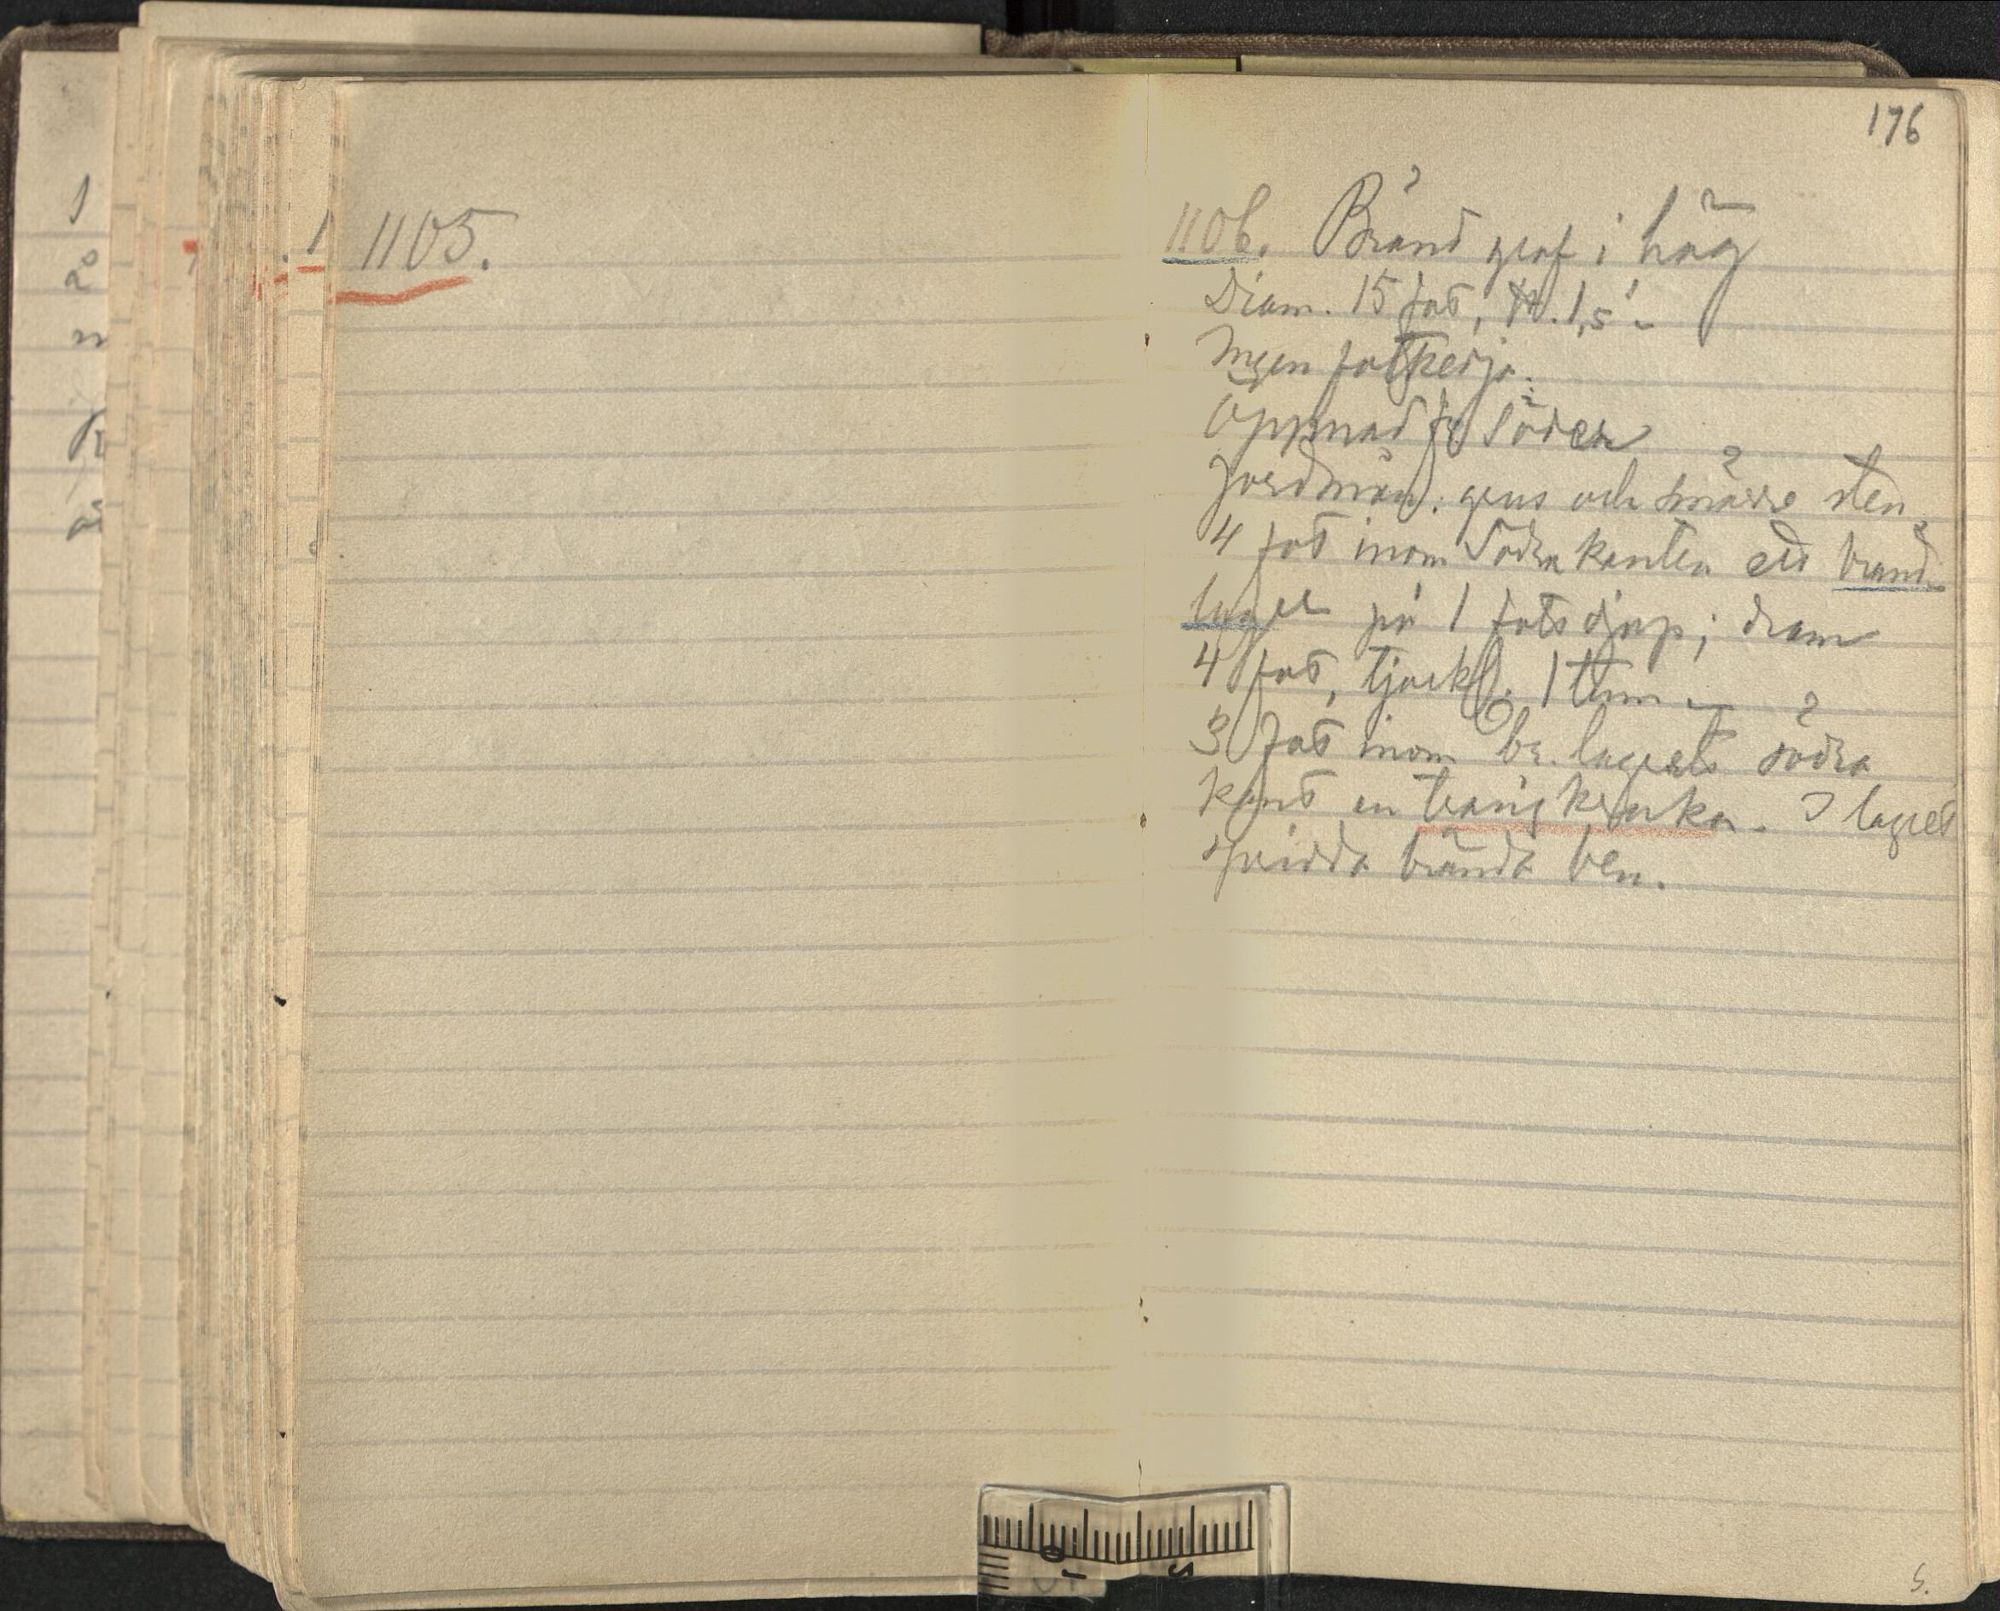 1105.
176
1106. Bränd graf i hög
Diam. 15 fot, H. 1,5'
Ingen fotkedja.
Öppnad fr Söder
Jordmån: grus och smärre sten
4 fot inom Södra kanten ett brand-
lager på 1 fots djup; diam
4 fot, tjockl. 1 tum
3 fot inom br. lagrets södra
kant en benig kruka. I lagret
spridda brända ben.